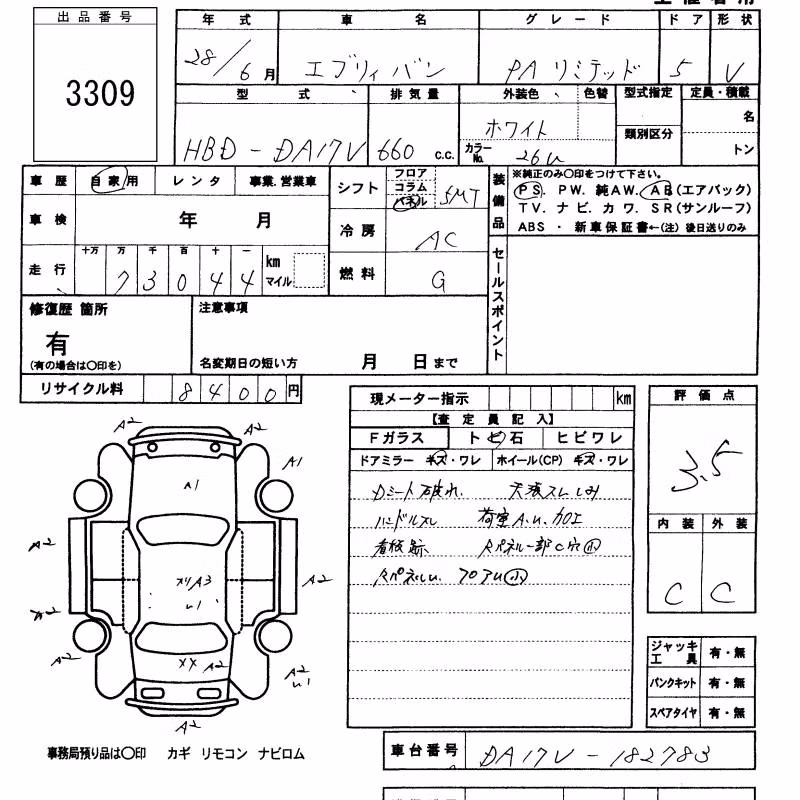 出品番号
3309
年式 車名 グレード ドア 形状
28/6月 エブリィバン PAリミテッド 5 V
型式 排気量 外装色 色替 型式指定 定員・積載
HBD-DA17V 660 c.c. ホワイト 名
カラーNo. 26U 類別区分 トン
車歴 自家用 レンタ 事業.営業車
シフト フロア コラム パネル 5MT
装備品 ※純正のみ〇印をつけて下さい。
PS. PW. 純AW. AB(エアバック)
TV. ナビ. カワ. SR(サンルーフ)
ABS ・ 新車保証書←(注) 後日送りのみ
車検 年 月
冷房 AC
走行 十万 万 千 百 十 一 km マイル
7 3 0 4 4
燃料 G
セールスポイント
修復歴 箇所
有
(有の場合は〇印を)
注意事項
名変期日の短い方 月 日まで
リサイクル料 8 4 0 0 円
現メーター指示 km
【査定員記入】
Fガラス トビ石 ヒビワレ
ドアミラー キズ・ワレ ホイール(CP) キズ・ワレ
Dシート破れ. 天張スレしみ
ハンドルスレ 荷室A.U.カロエ
看板跡
評価点
3.5
内装 外装
C C
A2 A2
A1
A1
A2 XリA3 A2
A2
A2 XX A2 A2
A2
ジャッキ工具 有・無
パンクキット 有・無
スペアタイヤ 有・無
事務局預り品は〇印 カギ リモコン ナビロム
車台番号 DA17V-182783